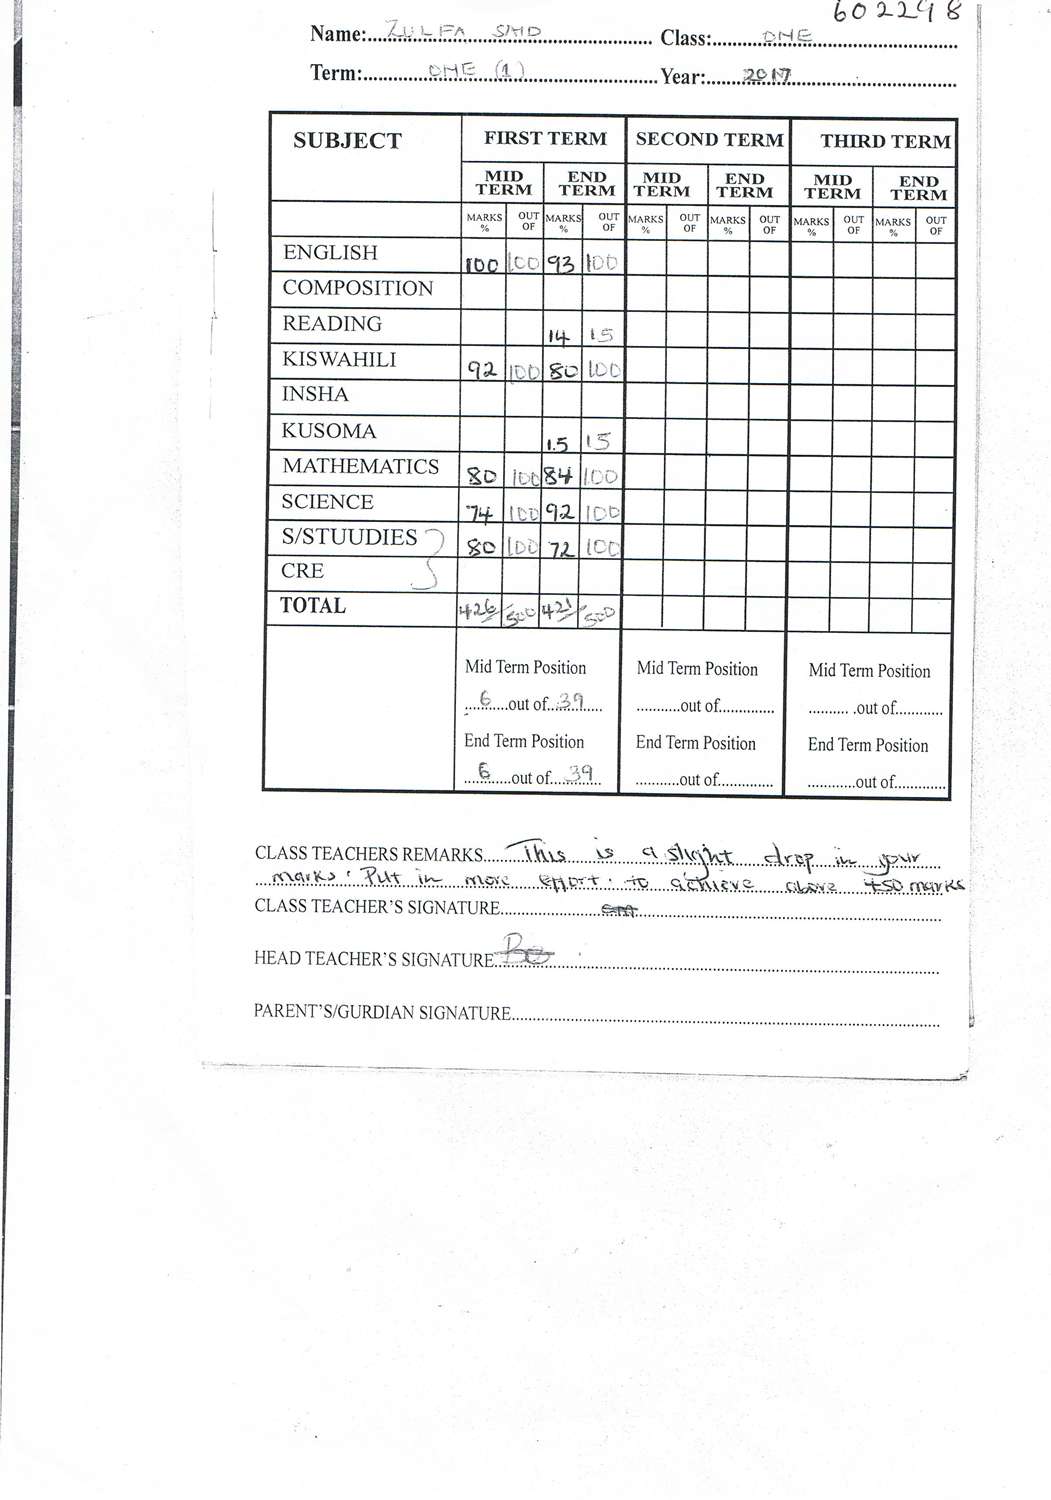 602298
Name: ZULFA SAID Class: ONE
Term: ONE (1) Year: 2017
SUBJECT FIRST TERM SECOND TERM THIRD TERM
MID TERM END TERM MID TERM END TERM MID TERM END TERM
MARKS % OUT OF MARKS % OUT OF MARKS % OUT OF MARKS % OUT OF MARKS % OUT OF MARKS % OUT OF
ENGLISH 100 100 93 100
COMPOSITION
READING 14 15
KISWAHILI 92 100 80 100
INSHA
KUSOMA 15 15
MATHEMATICS 80 100 84 100
SCIENCE 74 100 92 100
S/STUUDIES 80 100 72 100
CRE
TOTAL 426/500 421/500
Mid Term Position Mid Term Position Mid Term Position
6 out of 39 out of out of
End Term Position End Term Position End Term Position
6 out of 39 out of out of
CLASS TEACHERS REMARKS This is a slight drop in your
marks. Put in more effort to achieve above 450 marks
CLASS TEACHER'S SIGNATURE
HEAD TEACHER'S SIGNATURE
PARENT'S/GURDIAN SIGNATURE